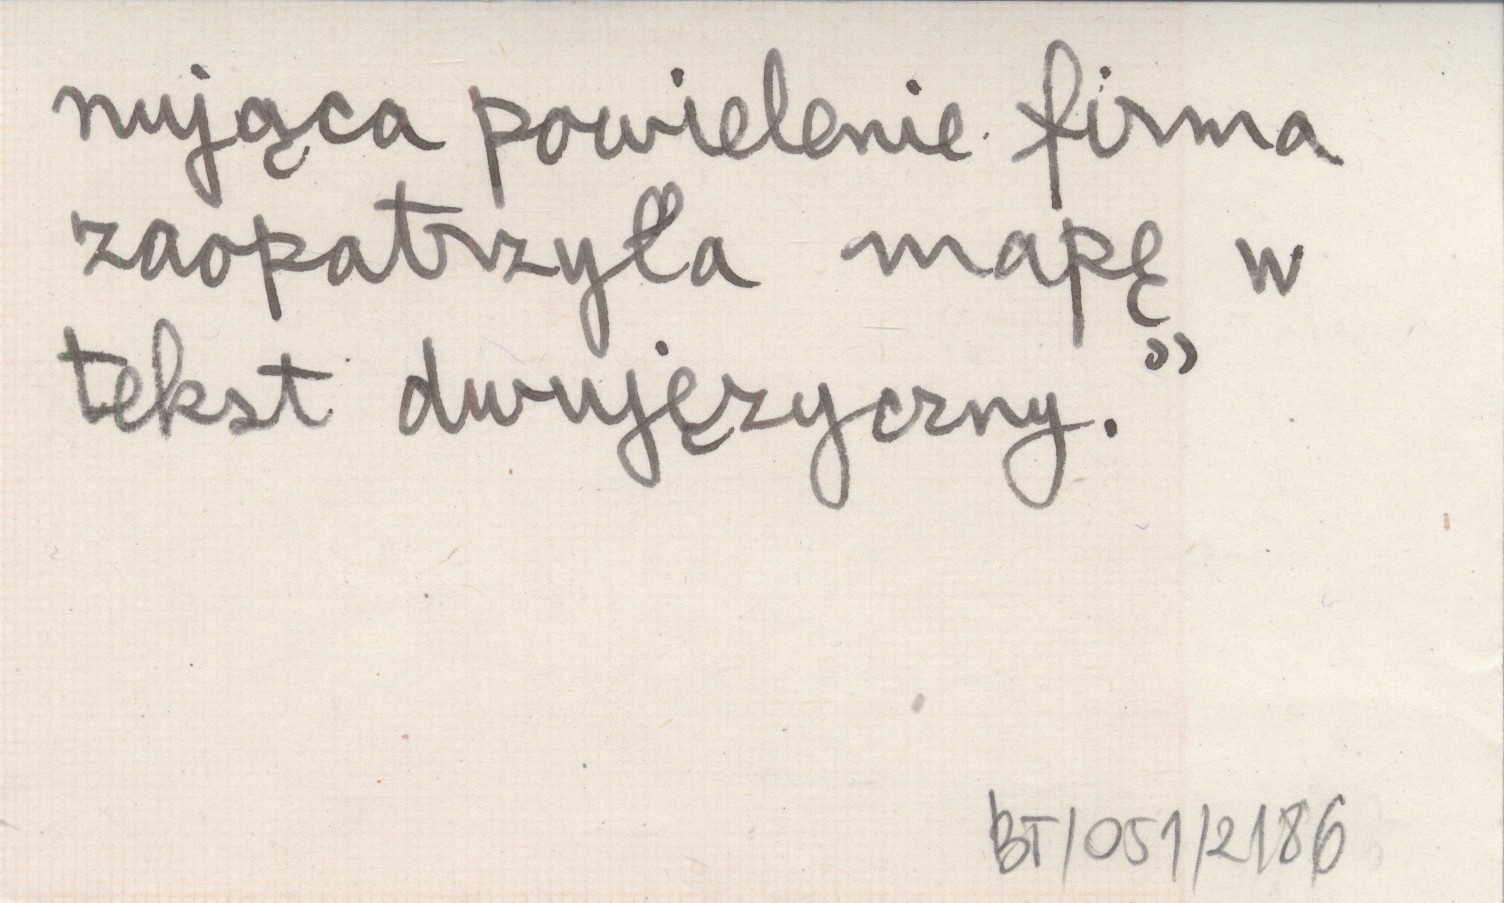 nująca powielenie firma
zaopatrzyła mapę w
tekst dwujęzyczny.”
BT/051/2186